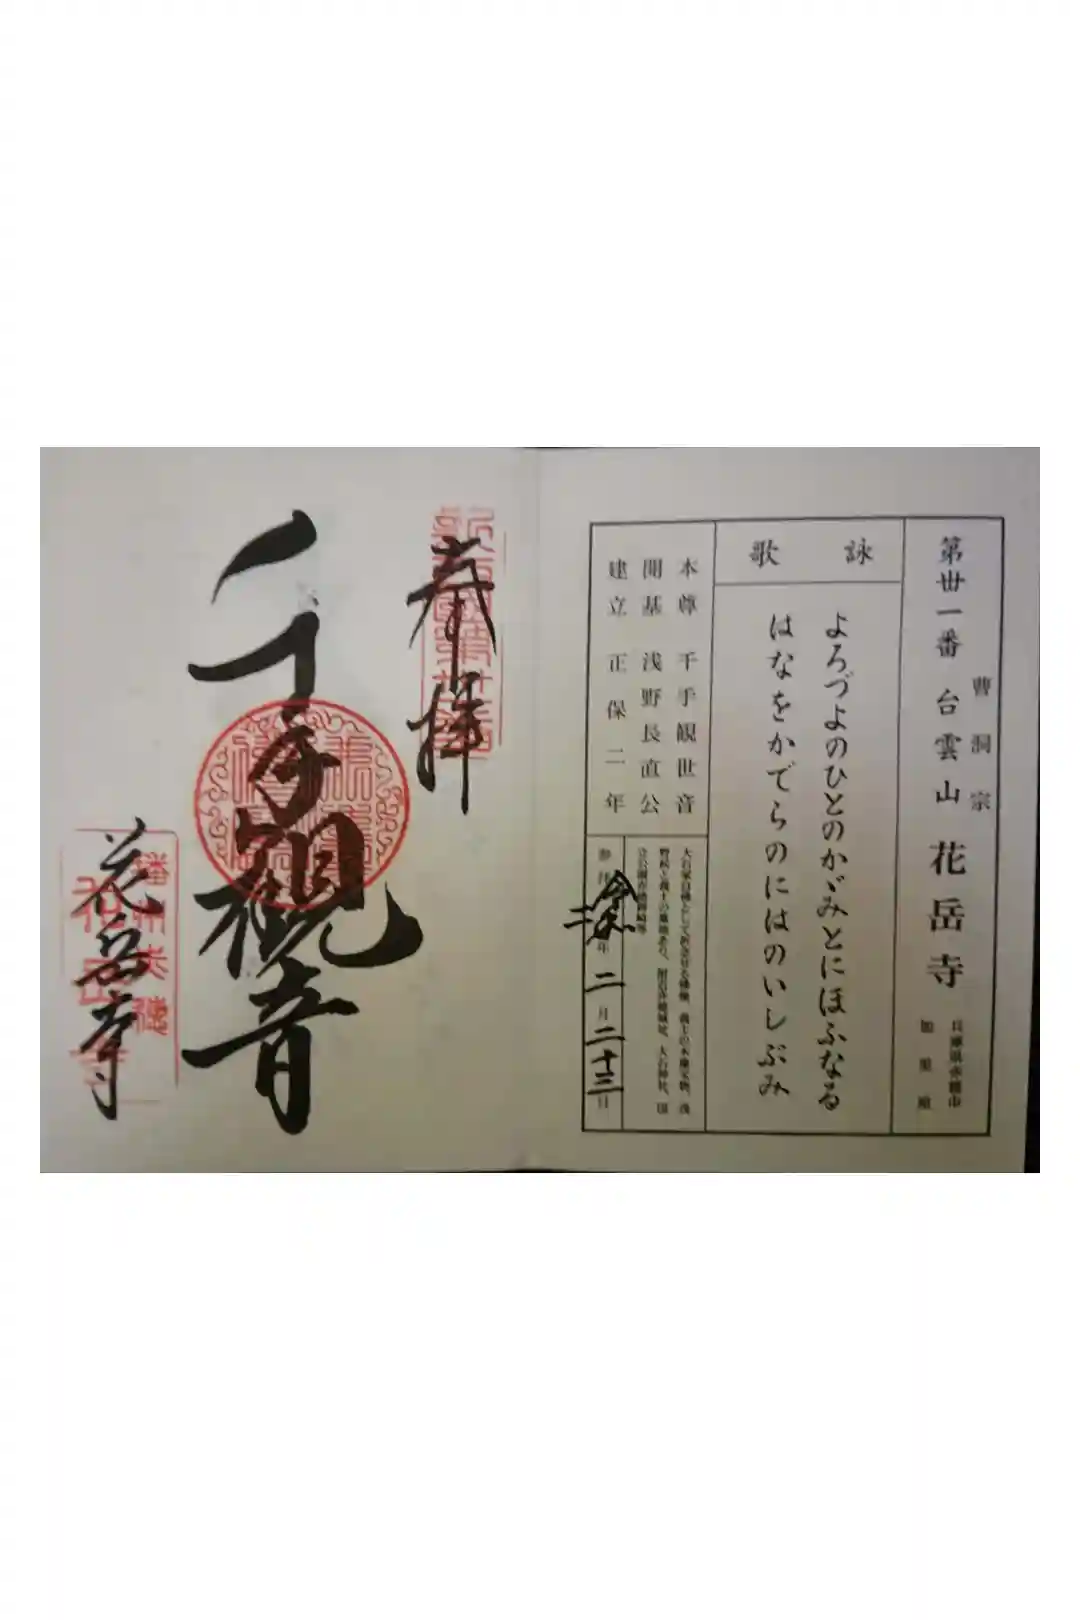 第丗一番 台雲山 花岳寺
曹洞宗
兵庫県赤穂市
加里屋
詠歌
よろづよのひとのかゞみとにほふなる
はなをかでらのにはのいしぶみ
本尊 千手観世音
開基 浅野長直公
建立 正保二年
参拝 令和二年二月二十三日
奉拝
千手観音
花岳寺
播州赤穂
花岳寺